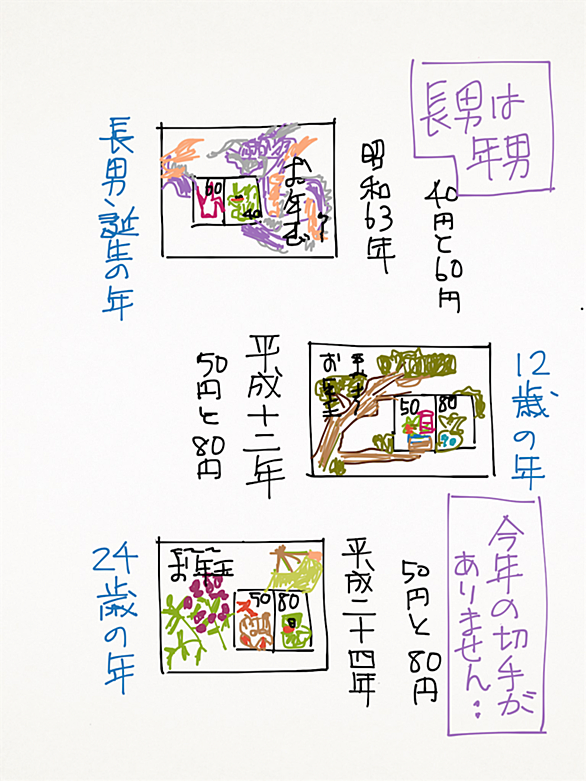 長男は
年男
40円と60円
昭和63年
60
40
お年玉
長男、誕生の年
12歳の年
50
80
お年玉
平成十二年
50円と80円
今年の切手が
ありません・・
50円と80円
平成二十四年
お年玉
50
80
24歳の年